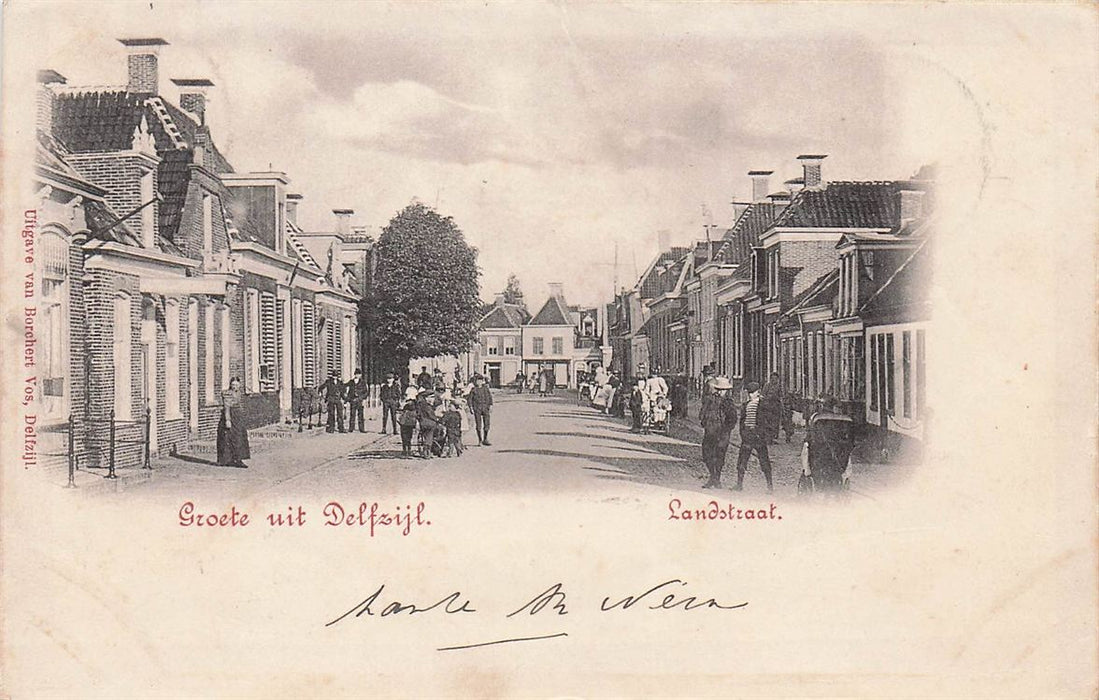 Uitgave van Borchert Vos, Delfzijl.
Groete uit Delfzijl.
Landstraat.